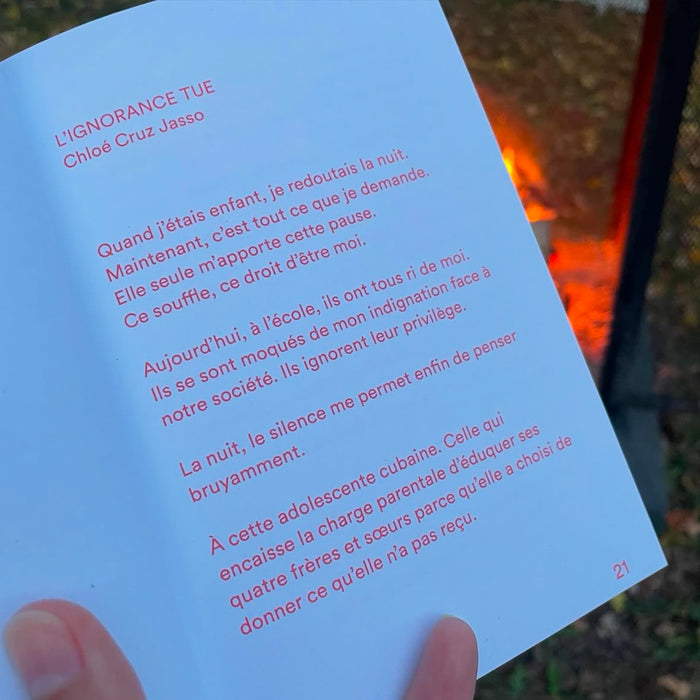 L'IGNORANCE TUE
Chloé Cruz Jasso
Quand j'étais enfant, je redoutais la nuit.
Maintenant, c'est tout ce que je demande.
Elle seule m'apporte cette pause.
Ce souffle, ce droit d'être moi.
Aujourd'hui, à l'école, ils ont tous ri de moi.
Ils se sont moqués de mon indignation face à
notre société. Ils ignorent leur privilège.
La nuit, le silence me permet enfin de penser
bruyamment.
À cette adolescente cubaine. Celle qui
encaisse la charge parentale d'éduquer ses
quatre frères et sœurs parce qu'elle a choisi de
donner ce qu'elle n'a pas reçu.
21